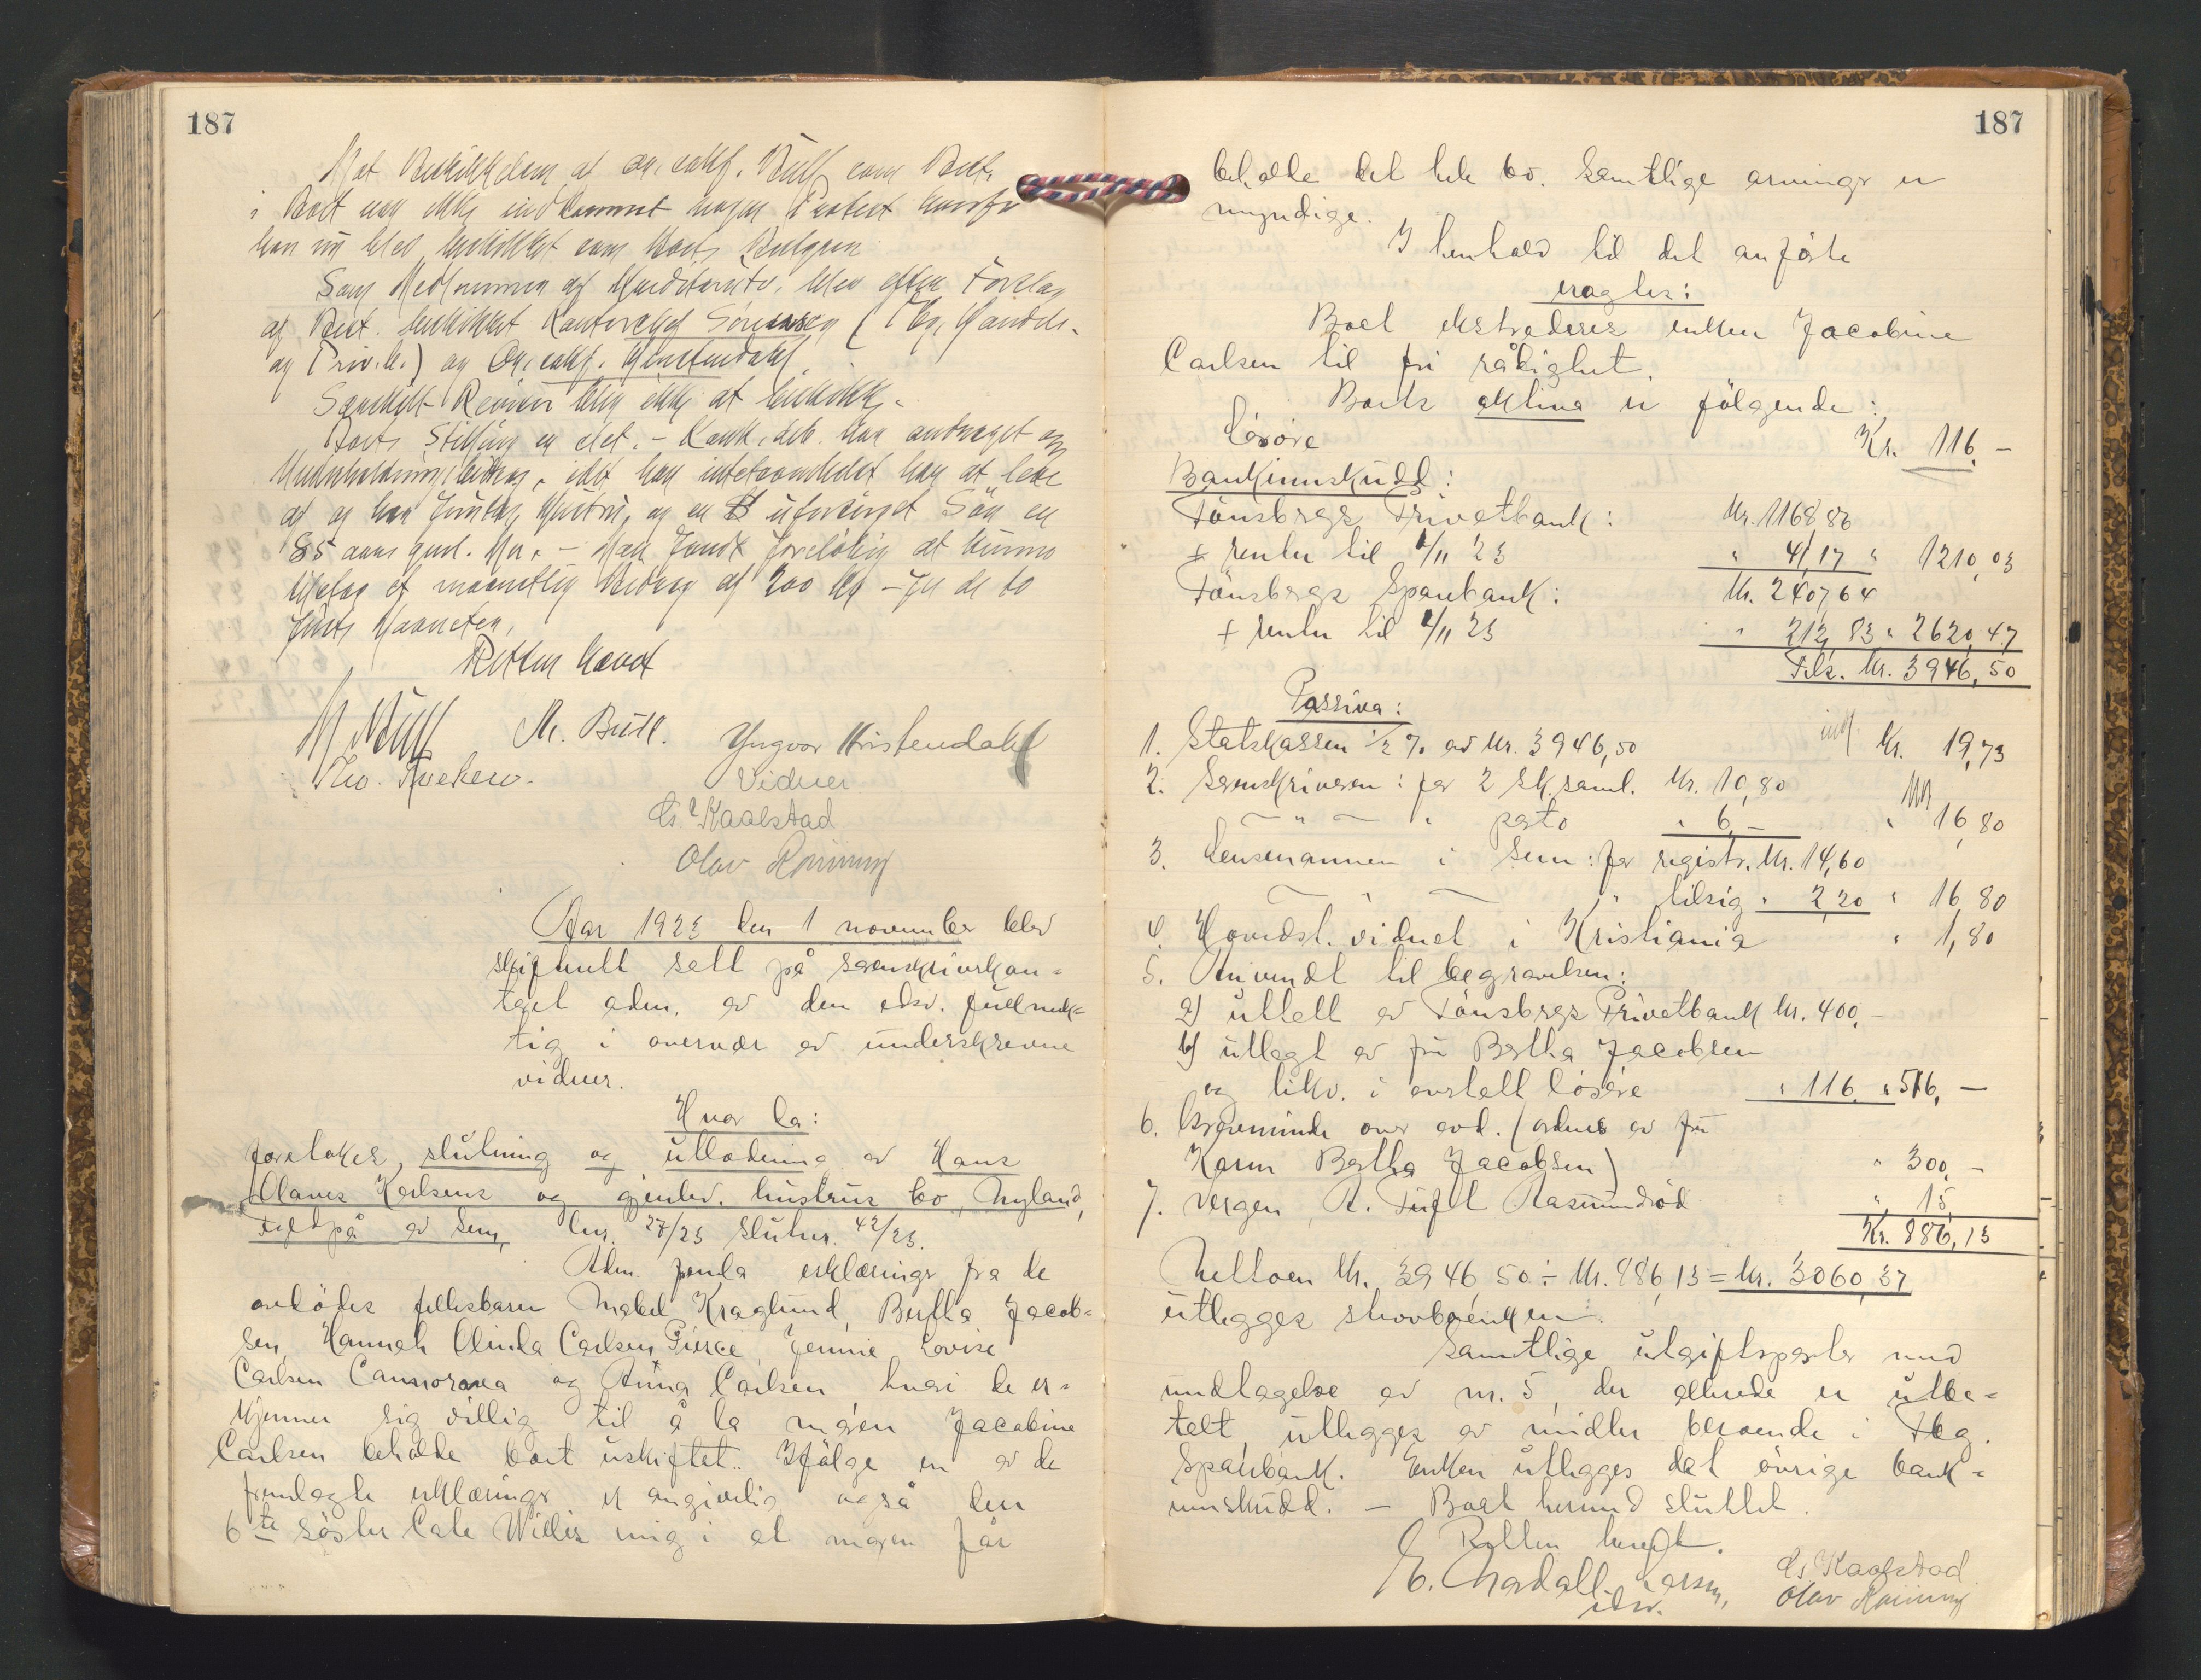 187
Mot Beskikkelsen af o.r.sakf. Bull som Best.
i Boet var ikke indkommet nogen Protest hvorfor
han nu blev beskikket som Boets Bestyrer.
Som Medlemmer af blev efter Forslag
af Best. beskikket Kontorchef Sörensen (Tbg. Handels-
og Priv.b.) og O.r.sakf. Christendahl.
Særskilt Revisor blev ikke at beskikke.
Boets Stilling er slet. - Konk.deb. har andraget om
Underholdningsbidrag, idet han intetsomhelst har at leve
af og har Hustru, og en Sön
85 aars gml. Mor. - Man fandt foreløbig at kunne
et maanedlig Bidrag af 200 Kr - for de to
första Maaneder.
Retten hævet
M Bull M. Bull. Yngvar Kristendahl
Vidner
Chr. Kaalstad
Olav
Aar 1923 den 1 november blev
skifterett satt på sorenskriverkon-
toret adm. av den edsv. fullmek-
tig i overvær av underskrevne
vidner.
Hvor da:
foretokes slutning og utlodning av Hans
Olaves Karlsens og gjenlev. hustrus bo, Nyland,
av Sem, lnr. 27/23 slutnr. 42/23.
Adm. fremla erklæringer fra de
avdödes fellesbarn Mabel Kraglund, Bertha Jacob-
sen, Hannah Olinda Carlsen Pierce, Jennie Lovise
Carlsen og Anna Carlsen hvori de er-
kjenner sig villig til å la moren Jacobine
Carlsen beholde boet uskiftet. Ifölge en av de
fremlagte erklæringer er angivelig også den
6te söster Willis enig i at moren får
187
beholde det hele bo. Samtlige arvinger er
myndige.
I henhold til det anförte
vragtes:
Boet ekstraderes enken Jacobine
Carlsen til fri rådighet.
Boets aktiva er fölgende:
Lösöre Kr. 116,-
Bankinnskudd:
Tönsbergs Privatbank: Kr. 1168 86
+ renter til 1/11 23 " 41,17 " 1210,03
Tönsbergs Sparebank: Kr. 2407 64
+ renter til 1/11 23 " 212,83 " 2620,47
Tils. Kr. 3946,50
Passiva:
1. Statskassen 1/2 % av Kr. 3946,50 Kr. 19,73
2. Sorenskriveren: for 2 sk.saml. Kr. 10,80
— " — " porto " 6,— " 16,80
3. Lensmannen i Sem: for registr. Kr. 14,60
— " — " tilsig. " 2,20 " 16,80
4. Hovedst. vidnet i Kristiania " 1,80
5. Anvendt til begravelsen:
a) uttatt av Tönsbergs Privatbank Kr. 400,-
b) utlagt av fru Bertha Jacobsen
og likv. i avstått lösöre " 116 " 516,—
6. Gravminde over avd. (ordnes av fru
Karen Bertha Jacobsen) " 300,-
7. Vergen, A. Tufte Rasmundröd " 15
Kr. 886,13
Nettoen Kr. 3946,50 ÷ Kr. 886,13 = Kr. 3060,37
utlegges enken.
Samtlige utgiftsposter med
undtagelse av nr. 5, der allerede er utbe-
talt, utlegges av midler beroende i Tbg.
Sparebank. Enken utlegges det övrige bank-
innskudd. — Boet hermed sluttet.
Retten hevet.
Larsen,
edsv.
Chr. Kaalstad
Olav